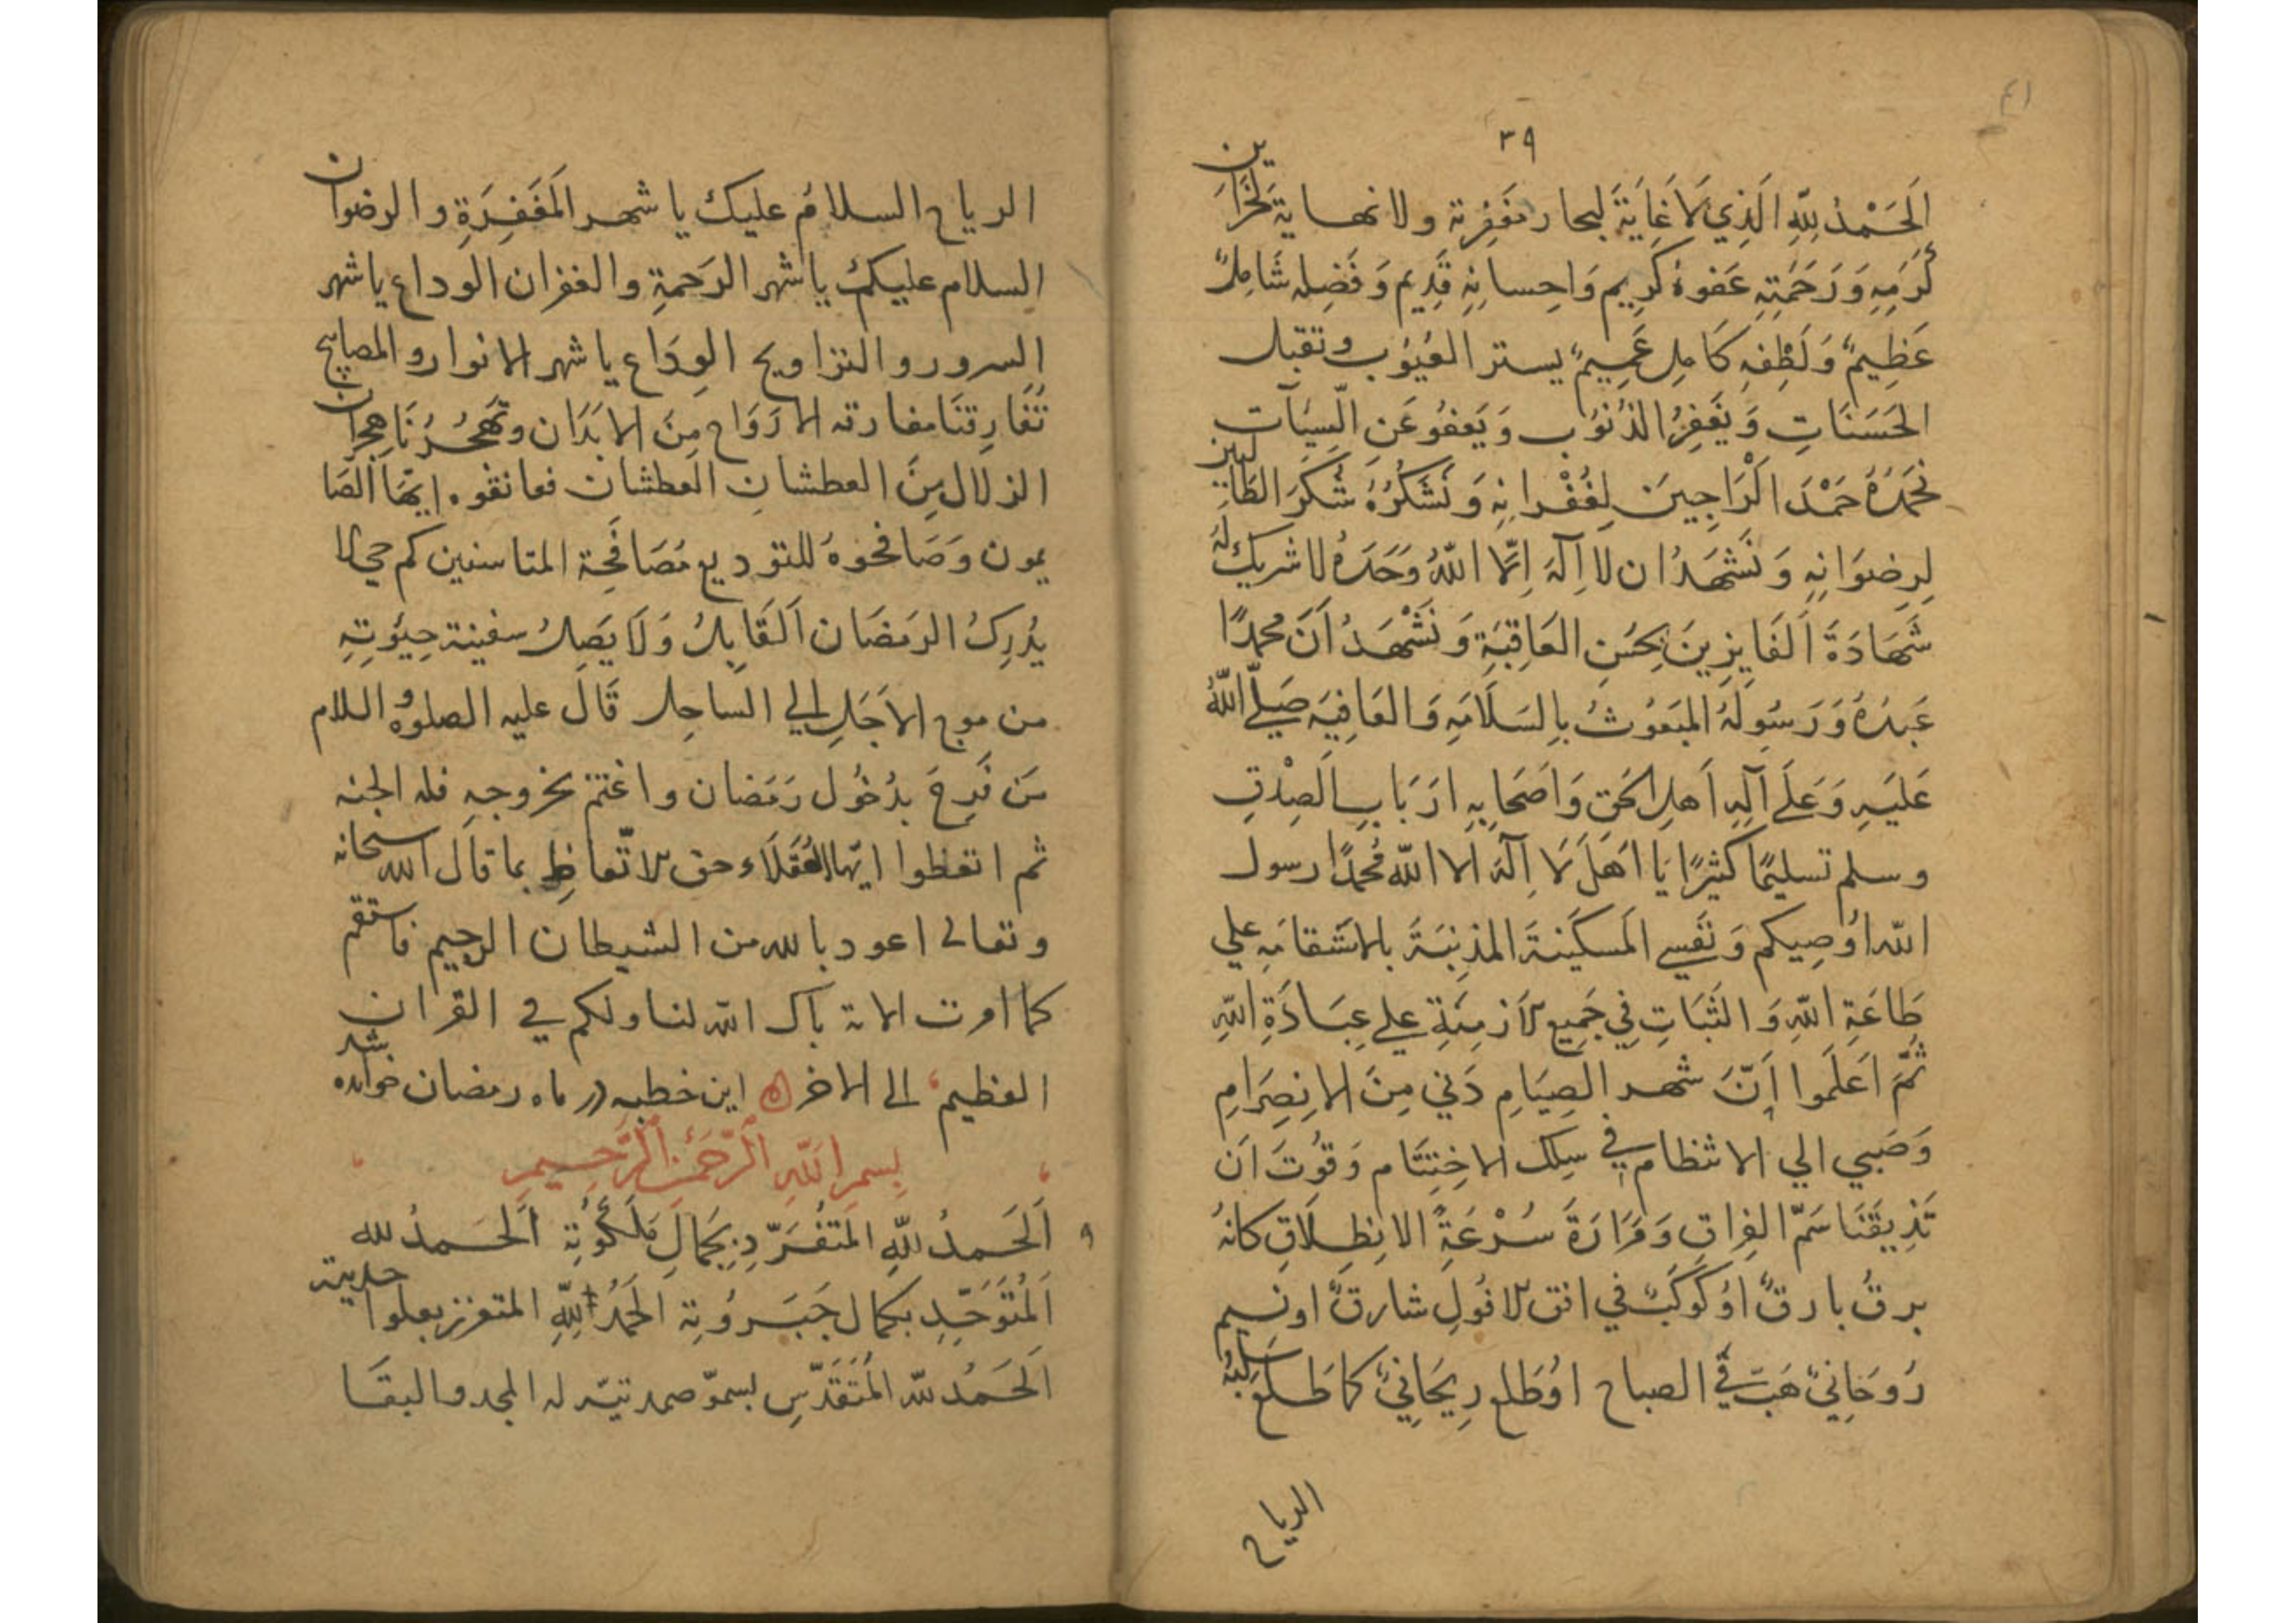 ٤١
٣٩
اَلحَمْدُ لِلّٰهِ الَّذِي لَا غَايَةَ لبحار مَغْفِرَتِه ولا نهاية لخَزَاين
كَرَمِهِ وَرَحْمَتِهِ عَفوهُ كَرِيم وَاحِسانِهِ قَدِيم وَفَضلِه شَامِلٌ
عَظِيمٌ وَلُطْفِهِ كَامِل عَمِيمٌ يستر العُيُوب وتقبل
الحَسَنَاتِ وَيَغفِرُ الذُنوُب وَيَعفُو عَنِ السِّيئآت
نَحمَدُهُ حَمْدَ الْرَاجِينَ لِغُفْرانِهِ وَنَشكُرُهُ شُكرَ الطَالبين
لِرِضوَانِهِ وَنَشهَدُ ان لا اِلٓهَ اِلَّا اللّٰهُ وَحَدَهُ لا شريك لَهُ
شَهَادَةَ اَلفَايِزِينَ بِحُسَنِ العَاقِبَةِ وَنَشْهَدُ اَنَ محمدًا
عَبدُهُ وَرَسُولَهُ المَبعُوثُ بِالسَلَامَةِ وَالعَافِيَه صَلَّي اللّٰهُ
عَلَيهِ وَعَلَي آلِهِ اَهلِ الحَق وَاَصَحَابِهِ ارَبَابِ الَصِدْقِ
وسلم تسليمًا كثيرًا يَا اَهَلَ لَا اِلٓهَ اِلا اللّٰه مُحَمدًا رسول
اللّٰه اوُصِيكم وَنَفَسِي المَسكَينَةَ المذِنبَةَ بالاسَتقامَهِ علي
طَاعَةِ اللّٰهِ وَالثَبَاتِ فِي جَمِيع الاَزمِنَةِ علي عِبَادَةِ اللّٰهِ
ثُمَّ اعَلَموا اِنَّ شهر الصِيَامِ دَني مِنَ الاِنصِرَامِ
وَصَبي الي الانتظام في سِلك الاخِتِتَام وَقوُتَ اَن
تَذِيقَنَا سَمّ الفِراقِ وَمَرَارَةَ سُرْعَةِ الانِطِلَاقِ كانهُ
برقٌ بارقٌ اوُ كَوكَبٌ في افق الافُولِ شارقٌ او نسيم
رُوحَانِيٌ هَبّ في الصباح اوُ طَلع رِيحَانِيٌ كما طَلع
الرياح
الرياح السلامُ عليك يا شهر المَغفِرَةِ والرضوان
السلام عليك يا شهر الرَحمَةِ والغفران الوداع يا شهر
السرور والتراويح الوِدَاع يا شهر الانوار والمصابيح
تَفَارِقنَا مفارقه الارَوَاح مِنَ الابَدَان وتَهجُرُنَا هجران
الزلال مِنَ العطشان العطشان فعانقوه ايهَا الصَا
يمون وَصَافحوهُ للتوديع مُصَافَحَة المتاسفين كم حي لا
يُدرِكُ الرمَضَان اَلقَابِلُ وَلَا يَصِلُ سفينة حيَوتِهِ
من موج الاَجَلِ الي السَاحِل قَالَ عليه الصلوةُ و السلام
مَن فَرِحَ بدُخُول رَمَضان واغتم بخروجهِ فله الجنه
ثم اتعظوا ايّها العُقَلَاء حق الاتّعاظِ بما قال اللّٰه سبحانه
وتعالى اعوذ باللّٰه من الشيطان الرجيم فاستقم
كما امرت الاية بارك اللّٰه لنا ولكم في القران
العظيم الى الاخره اين خطبه در ماه رمضان خوانده شد
بِسمِ اللّٰهِ الرَّحمٰنِ الرَّحِيمِ
اَلحَمدُ لِلّٰهِ المَتفُرَّدِ بِجَمَالِ مَلَكُوُتِه اَلحَمدُ لله
اَلمُتَوَحِّدِ بكمال جَبَرُوُتِه الحَمَدُ لِلّٰهِ المتعزز بعلو احديته
اَلحَمدُ للّٰه المُتَقَدِّسِ بسموّ صمديّته له المجد والبقَا